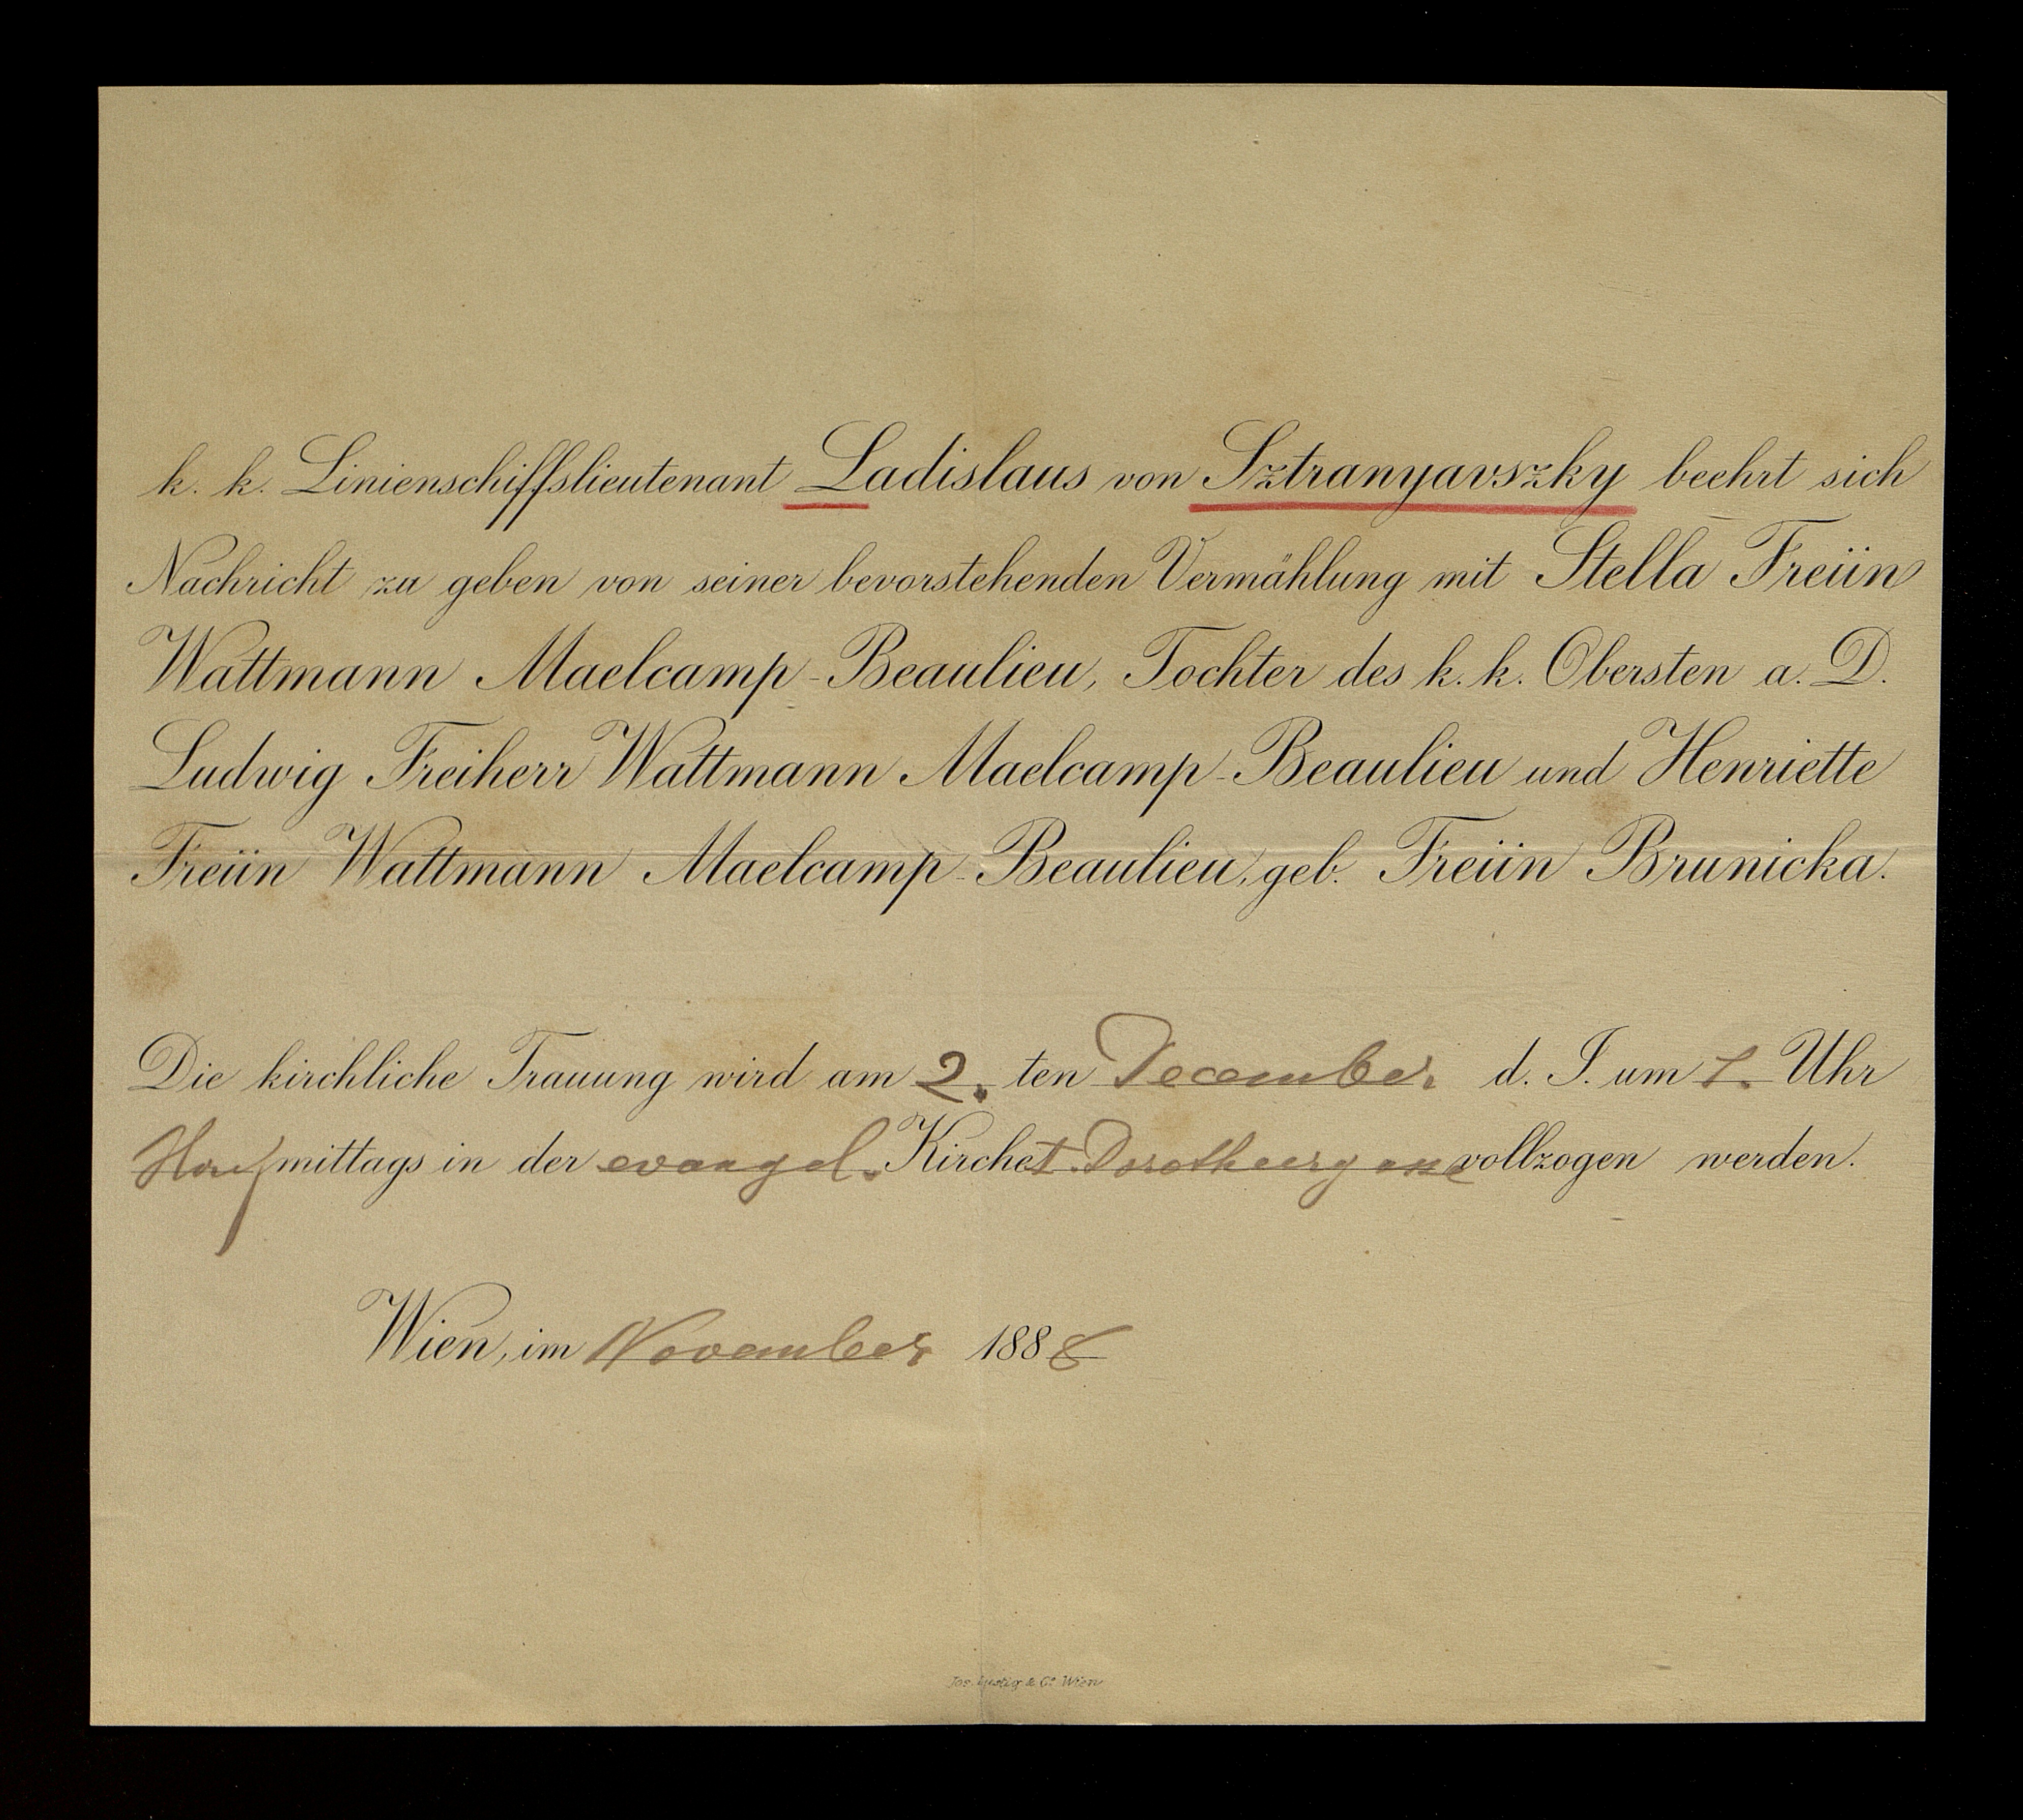 k. k. Linienschiffslieutenant Ladislaus von Sztranyavszky beehrt sich
Nachricht zu geben von seiner bevorstehenden Vermählung mit Stella Freiin
Wattmann Maelcamp-Beaulieu, Tochter des k. k. Obersten a. D.
Ludwig Freiherr Wattmann Maelcamp-Beaulieu und Henriette
Freiin Wattmann Maelcamp-Beaulieu, geb. Freiin Brunicka.
Die kirchliche Trauung wird am 2. ten December d. J. um Uhr
mittags in der evangel. Kirche Dorotheergasse vollzogen werden.
Wien, im November 1888
Jos. & Co. Wien